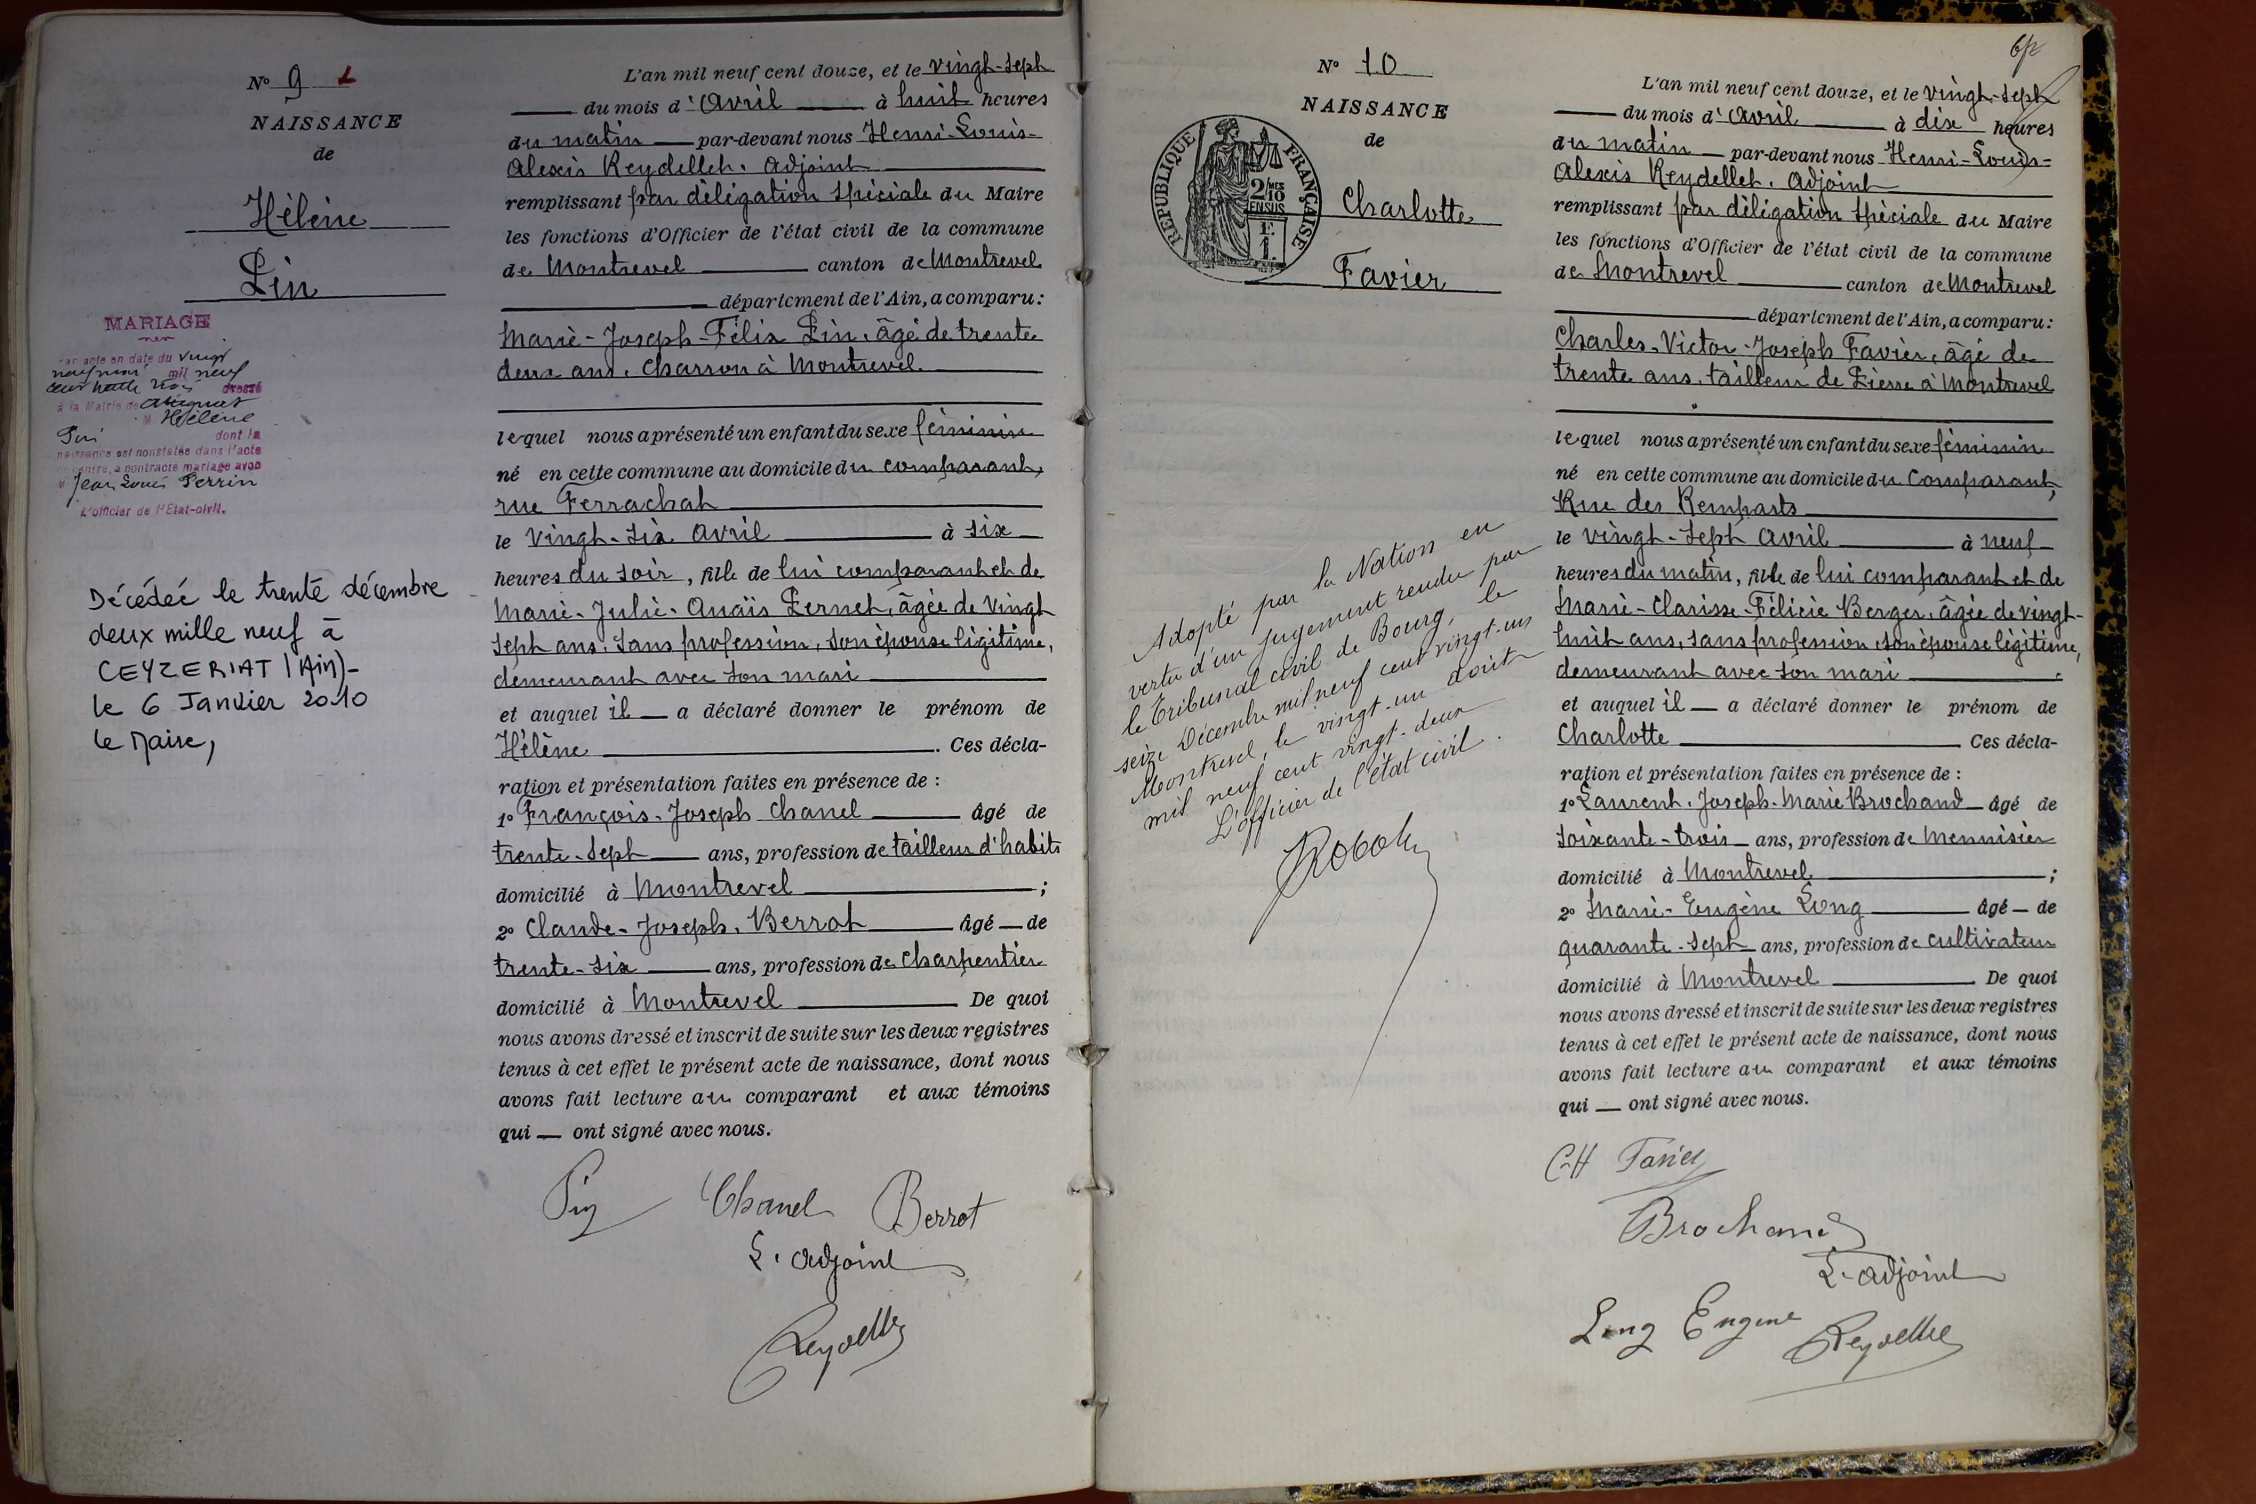 N° 9 1
NAISSANCE
de
Hélène
Pin
MARIAGE
Par acte en date du vingt
neuf mai mil neuf
cent trente trois dressé
à la Mairie de
M Hélène
Pin dont la
naissance est constatée dans l'acte
ci-contre, a contracté mariage avec
M Jean Louis Perrin
L'officier de l'Etat-civil.
Décédée le trente décembre
deux mille neuf à
CEYZERIAT (Ain)-
le 6 Janvier 2010
le Maire,
L'an mil neuf cent douze, et le vingt-sept
du mois d'avril à huit heures
du matin par-devant nous Henri-Louis-
Alexis Reydellet, adjoint
remplissant par délégation spéciale du Maire
les fonctions d'Officier de l'état civil de la commune
de Montrevel canton de Montrevel
département de l'Ain, a comparu:
Marie-Joseph-Félix Pin, âgé de trente
deux ans, charron à Montrevel
lequel nous a présenté un enfant du sexe féminin
né en cette commune au domicile du comparant,
rue Ferrachat
le vingt-six avril à six
heures du soir, fille de lui comparant et de
Marie-Julie-Anaïs Pernet, âgée de vingt
sept ans, sans profession, son épouse légitime,
demeurant avec son mari
et auquel il a déclaré donner le prénom de
Hélène. Ces décla-
ration et présentation faites en présence de :
1° François-Joseph Chanel âgé de
trente-sept ans, profession de tailleur d'habits
domicilié à Montrevel ;
2° Claude-Joseph, Berrot âgé de
trente-six ans, profession de charpentier
domicilié à Montrevel De quoi
nous avons dressé et inscrit de suite sur les deux registres
tenus à cet effet le présent acte de naissance, dont nous
avons fait lecture au comparant et aux témoins
qui ont signé avec nous.
Pin Chanel Berrot
L'adjoint
Reydellet
6
N° 10
NAISSANCE
de
RÉPUBLIQUE FRANÇAISE
2/10 MES
EN SUS
F.
1.
Charlotte
Favier
Adopté par la Nation en
vertu d'un jugement rendu par
le Tribunal civil de Bourg, le
seize Décembre mil neuf cent vingt-un
Montrevel, le vingt-un Août
mil neuf cent vingt-deux
L'officier de l'état civil.
L'an mil neuf cent douze, et le vingt-sept
du mois d'avril à dix heures
du matin par-devant nous Henri-Louis-
Alexis Reydellet, adjoint
remplissant par délégation spéciale du Maire
les fonctions d'Officier de l'état civil de la commune
de Montrevel canton de Montrevel
département de l'Ain, a comparu:
Charles-Victor-Joseph Favier, âgé de
trente ans, tailleur de Pierre à Montrevel
lequel nous a présenté un enfant du sexe féminin
né en cette commune au domicile du comparant,
Rue des Remparts
le vingt-sept avril à neuf
heures du matin, fille de lui comparant et de
Marie-Clarisse-Félicie Berger, âgée de vingt-
huit ans, sans profession, son épouse légitime,
demeurant avec son mari.
et auquel il a déclaré donner le prénom de
Charlotte Ces décla-
ration et présentation faites en présence de :
1° Laurent-Joseph-Marie Brochand âgé de
soixante-trois ans, profession de Menuisier
domicilié à Montrevel ;
2° Marie-Eugène Long âgé de
quarante-sept ans, profession de cultivateur
domicilié à Montrevel De quoi
nous avons dressé et inscrit de suite sur les deux registres
tenus à cet effet le présent acte de naissance, dont nous
avons fait lecture au comparant et aux témoins
qui ont signé avec nous.
CH Favier
Brochand
L'adjoint
Long Eugène Reydellet